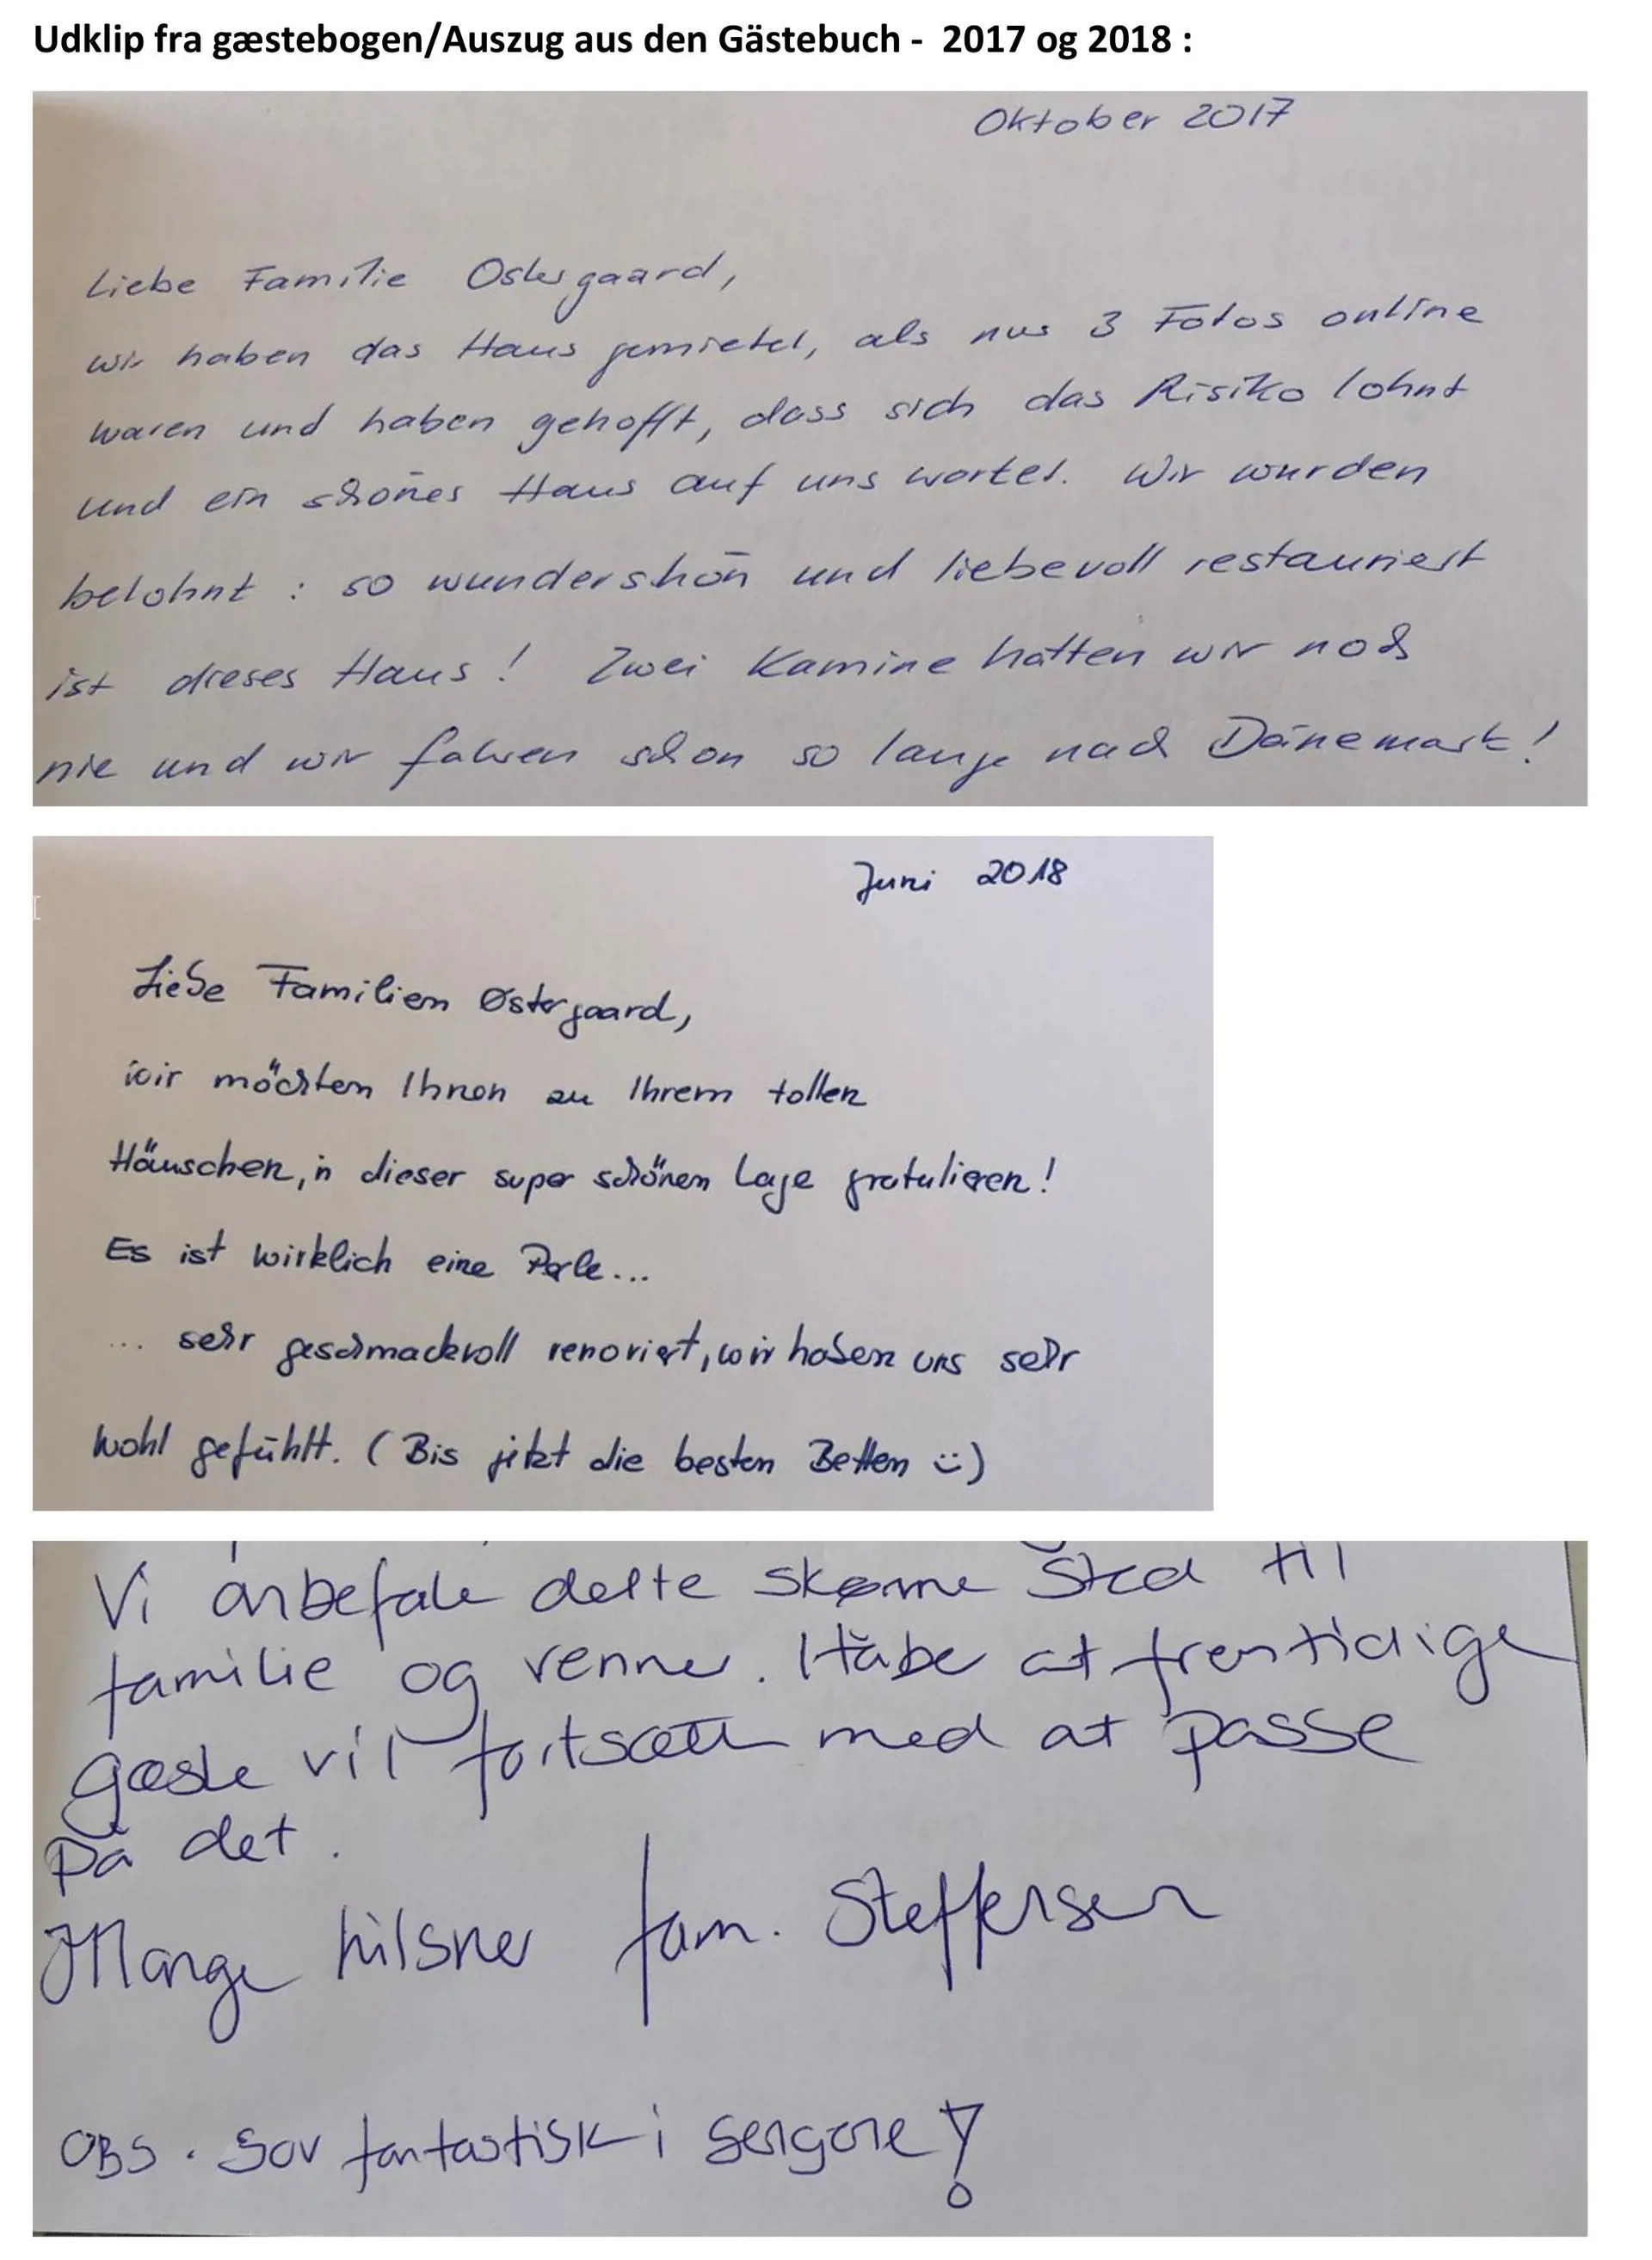 Udklip fra gæstebogen/Auszug aus den Gästebuch - 2017 og 2018 :
Oktober 2017
Liebe Familie Ostergaard,
wir haben das Haus gemietet, als nur 3 Fotos online
waren und haben gehofft, dass sich das Risiko lohnt
und ein schönes Haus auf uns wartet. Wir wurden
belohnt : so wundershön und liebevoll restauriert
ist dieses Haus ! Zwei Kamine hatten wir noch
nie und wir fahren schon so lange nach Dänemark !
Juni 2018
Liebe Familien Østergaard,
wir möchten Ihnen zu Ihrem tollen
Häuschen, in dieser super schönen Lage gratulieren !
Es ist wirklich eine Perle...
... sehr geschmackvoll renoviert, wir haben uns sehr
wohl gefühlt. ( Bis jetzt die besten Betten :) )
Vi anbefale dette skønne sted til
familie og venner. Håbe at fremtidige
gæste vil fortsætte med at passe
på det .
Mange hilsner fam. Steffensen
OBS . Sov fantastisk i sengene !